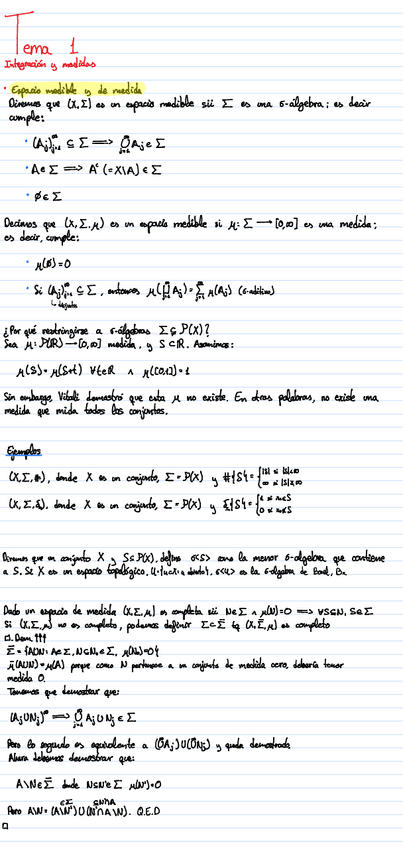 Tema 1
Integración y medidas
· Espacio medible y de medida
Diremos que (X,Σ) es un espacio medible sii Σ es una σ-álgebra; es decir
cumple:
· (Aj)_{j=1}^∞ ⊆ Σ ⟹ ⋃_{j=1}^∞ Aj ∈ Σ
· A∈Σ ⟹ A^c (= X\A) ∈ Σ
· ∅∈Σ
Decimos que (X,Σ,μ) es un espacio medible si μ: Σ ⟶ [0,∞] es una medida;
es decir, cumple:
· μ(∅)=0
· Si (Aj)_{j=1}^∞ ⊆ Σ, entonces μ(⋃_{j=1}^∞ Aj) = Σ_{j=1}^∞ μ(Aj) (σ-aditiva)
↳ disjuntos
¿Por qué restringirse a σ-álgebras Σ⊊P(X)?
Sea μ: P(ℝ) ⟶ [0,∞] medida, y S⊂ℝ. Asumimos:
μ(S) = μ(S+t) ∀t∈ℝ ∧ μ([0,1])=1
Sin embargo, Vitali demostró que esta μ no existe. En otras palabras, no existe una
medida que mida todos los conjuntos.
Ejemplos
(X,Σ,#), donde X es un conjunto, Σ=P(X) y #(S)= { |S| si |S|<∞
∞ si |S|=∞
(X,Σ,δ), donde X es un conjunto, Σ=P(X) y
0 si x∉S
Diremos que un conjunto X y S⊆P(X), define σ<S> como la menor σ-álgebra que contiene
a S. Si X es un espacio topológico, σ<u> es la σ-álgebra de Borel, Bx
Dado un espacio de medida (X,Σ,μ), es completa sii N∈Σ ∧ μ(N)=0 ⟹ ∀S⊆N, S∈Σ
Si (X,Σ,μ) no es completo, podemos definir Σ⊂Σ̄ tq (X,Σ̄,μ̄) es completo
□. Dem.
Σ̄ = {A∪N: A∈Σ, N⊆N₀∈Σ, μ(N₀)=0}
μ̄(A∪N)=μ(A) porque como N pertenece a un conjunto de medida cero, debería tener
medida 0.
Tenemos que demostrar que:
(Aj∪Nj)^∞ ⟹ ⋃_{j=1}^∞ Aj∪Nj ∈ Σ
Pero lo segundo es equivalente a (⋃Aj)∪(⋃Nj) y queda demostrado
Ahora debemos demostrar que:
A\N∈Σ̄ donde N⊆N'∈Σ μ(N')=0
Pero A\N = (A\N')∪(N'∩A\N). Q.E.D
□